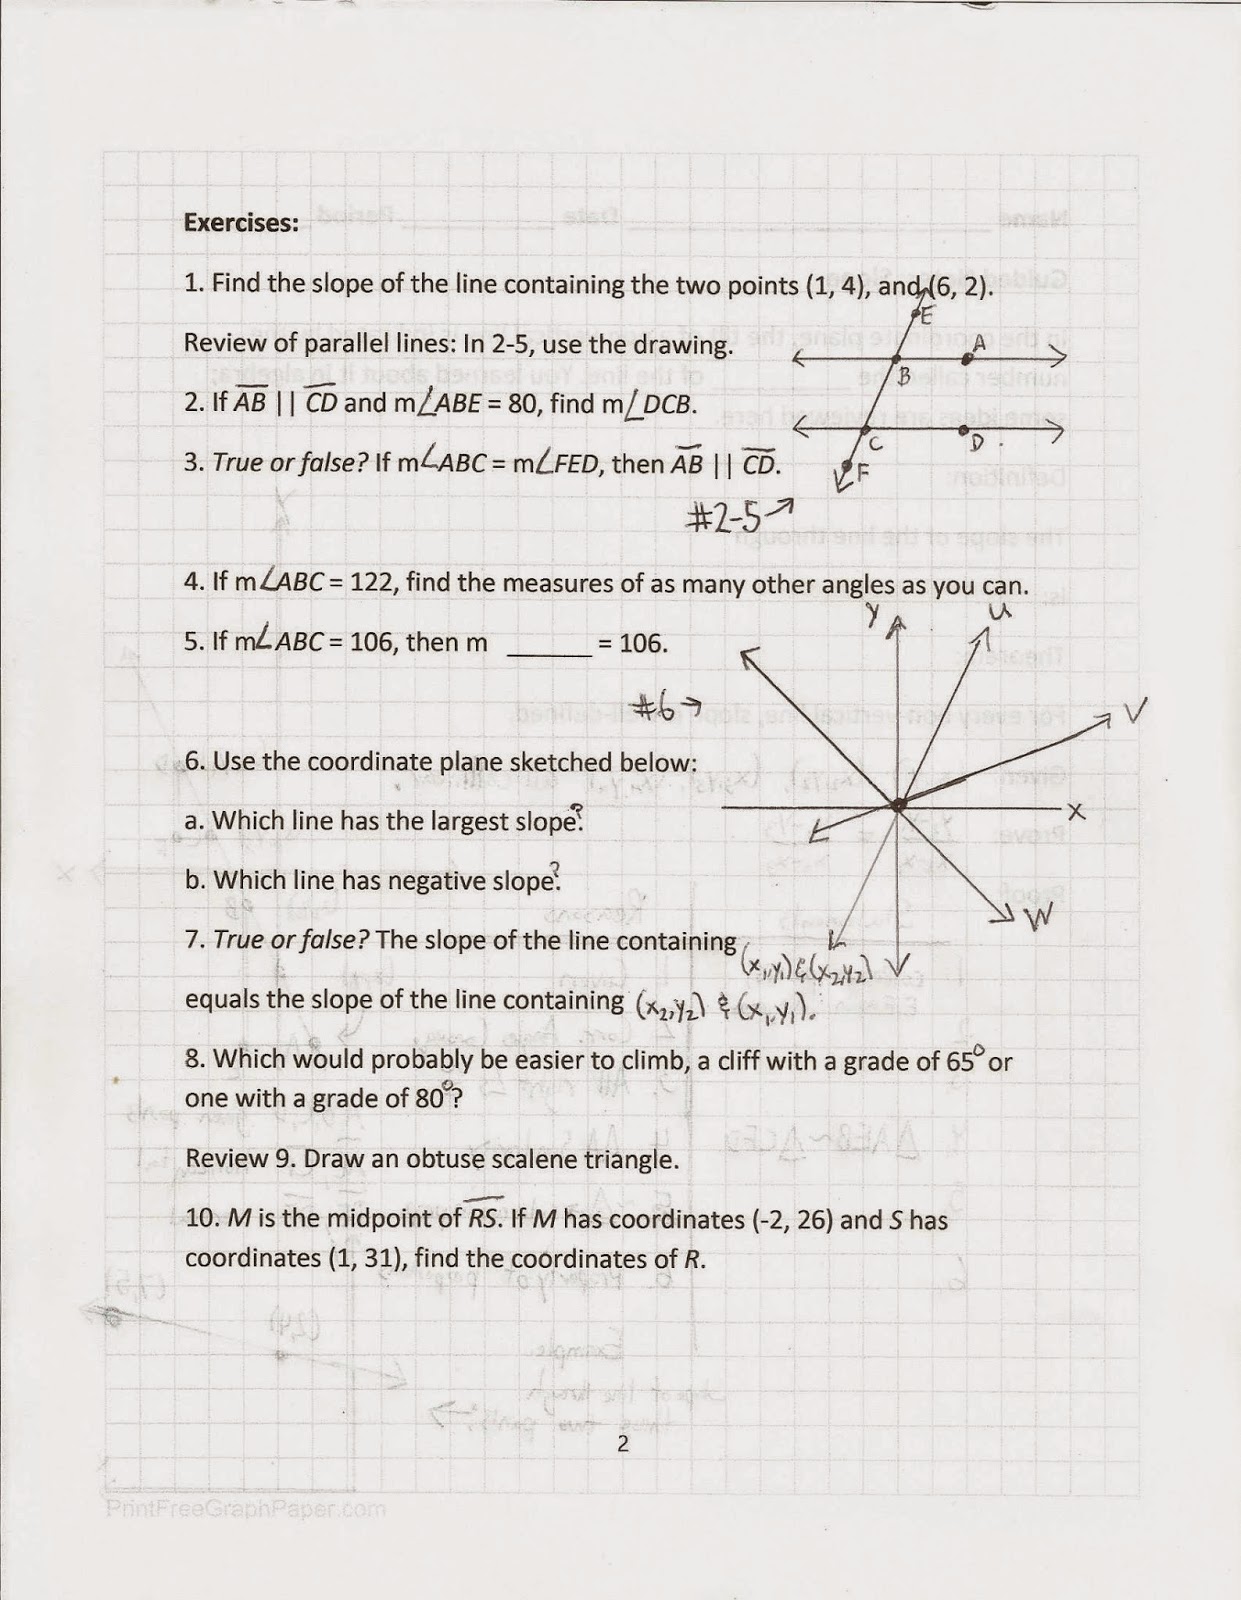 Exercises:
1. Find the slope of the line containing the two points (1, 4), and (6, 2).
E
Review of parallel lines: In 2-5, use the drawing.
A
B
2. If AB || CD and m∠ABE = 80, find m∠DCB.
C
D
3. True or false? If m∠ABC = m∠FED, then AB || CD.
F
#2-5→
4. If m∠ABC = 122, find the measures of as many other angles as you can.
y
u
5. If m∠ABC = 106, then m ______ = 106.
#6→
V
6. Use the coordinate plane sketched below:
X
a. Which line has the largest slope?
b. Which line has negative slope?
W
7. True or false? The slope of the line containing (x₁,y₁) & (x₂,y₂)
equals the slope of the line containing (x₂,y₂) & (x₁,y₁).
8. Which would probably be easier to climb, a cliff with a grade of 65° or
one with a grade of 80°?
Review 9. Draw an obtuse scalene triangle.
10. M is the midpoint of RS. If M has coordinates (-2, 26) and S has
coordinates (1, 31), find the coordinates of R.
2
PrintFreeGraphPaper.com